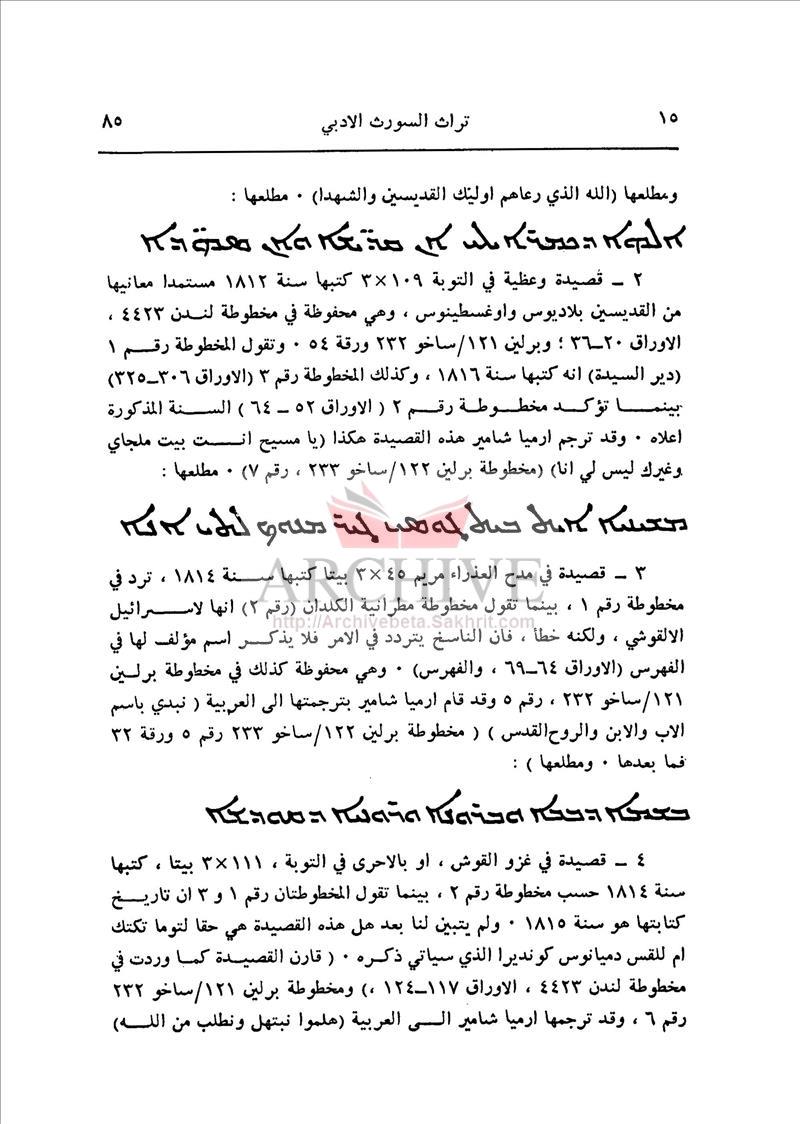 ١٥ تراث السورث الادبي ٨٥
ومطلعها (الله الذي رعاهم اولئك القديسين والشهدا) ٠ مطلعها :
٢ ــ قصيدة وعظية في التوبة ١٠٩×٣ كتبها سنة ١٨١٢ مستمدا معانيها
من القديسين بلاديوس واوغسطينوس ، وهي محفوظة في مخطوطة لندن ٤٤٢٣ ،
الاوراق ٢٠ــ٣٦ ؛ وبرلين ١٢١/ساخو ٢٣٢ ورقة ٥٤ ٠ وتقول المخطوطة رقــم ١
(دير السيدة) انه كتبها سنة ١٨١٦ ، وكذلك المخطوطة رقم ٣ (الاوراق ٣٠٦ــ٣٢٥)
بينمـــا تؤكــد مخطــوطــة رقــم ٢ ( الاوراق ٥٢ ــ ٦٤ ) الســنة المذكورة
اعلاه ٠ وقد ترجم ارميا شامير هذه القصيدة هكذا (يا مسيح انــت بيت ملجاي
وغيرك ليس لي انا) (مخطوطة برلين ١٢٢/ساخو ٢٣٣ ، رقم ٧) ٠ مطلعها :
ARCHIVE
٣ ــ قصيدة في مدح العذراء مريم ٤٥×٣ بيتا كتبها ســنة ١٨١٤ ، ترد في
مخطوطة رقم ١ ، بينما تقول مخطوطة مطرانية الكلدان (رقم ٢) انها لاســرائيل
http://Archivebeta.Sakhrit.com
الالقوشي ، ولكنه خطأ ، فان الناسخ يتردد في الامر فلا يذكــر اسم مؤلف لها في
الفهرس (الاوراق ٦٤ــ٦٩ ، والفهرس) ٠ وهي محفوظة كذلك في مخطوطة برلــين
١٢١/ساخو ٢٣٢ ، رقم ٥ وقد قام ارميا شامير بترجمتها الى العربية ( نبدي باسم
الاب والابن والروح القدس ) ( مخطوطة برلين ١٢٢/ساخو ٢٣٣ رقم ٥ ورقة ٣٢
فما بعدها ٠ ومطلعها ) :
٤ ــ قصيدة في غزو القوش ، او بالاحرى في التوبة ، ١١١×٣ بيتا ، كتبها
سنة ١٨١٤ حسب مخطوطة رقم ٢ ، بينما تقول المخطوطتان رقم ١ و ٣ ان تاريــخ
كتابتها هو سنة ١٨١٥ ٠ ولم يتبين لنا بعد هل هذه القصيدة هي حقا لتوما تكتك
ام للقس دميانوس كونديرا الذي سياتي ذكــره ٠ ( قارن القصيــدة كمــا وردت في
مخطوطة لندن ٤٤٢٣ ، الاوراق ١١٧ــ١٢٤ ،) ومخطوطة برلين ١٢١/ساخو ٢٣٢
رقم ٦ ، وقد ترجمها ارميا شامير الــى العربية (هلموا نبتهل ونطلب من اللــه)